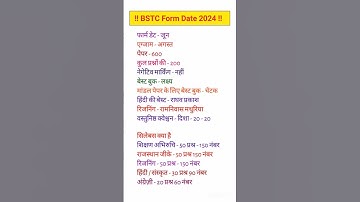 !! BSTC Form Date 2024 !!
फार्म डेट - जून
एग्जाम - अगस्त
पेपर - 600
कुल प्रश्नों की - 200
नेगेटिव मार्किंग - नहीं
बेस्ट बुक - लक्ष्य
मांडल पेपर के लिए बेस्ट बुक - चेटक
हिंदी की बेस्ट - राघव प्रकाश
रिजनिंग - रामनिवास मथुरिया
वस्तुनिष्ठ क्वेश्चन - दिशा - 20 - 20
सिलेबस क्या है
शिक्षण अभिरुचि - 50 प्रश्न - 150 नंबर
राजस्थान जीके - 50 प्रश्न 150 नंबर
रिजनिंग - 50 प्रश्न - 150 नंबर
हिंदी / संस्कृत - 30 प्रश्न 90 नंबर
अंग्रेज़ी - 20 प्रश्न 60 नंबर